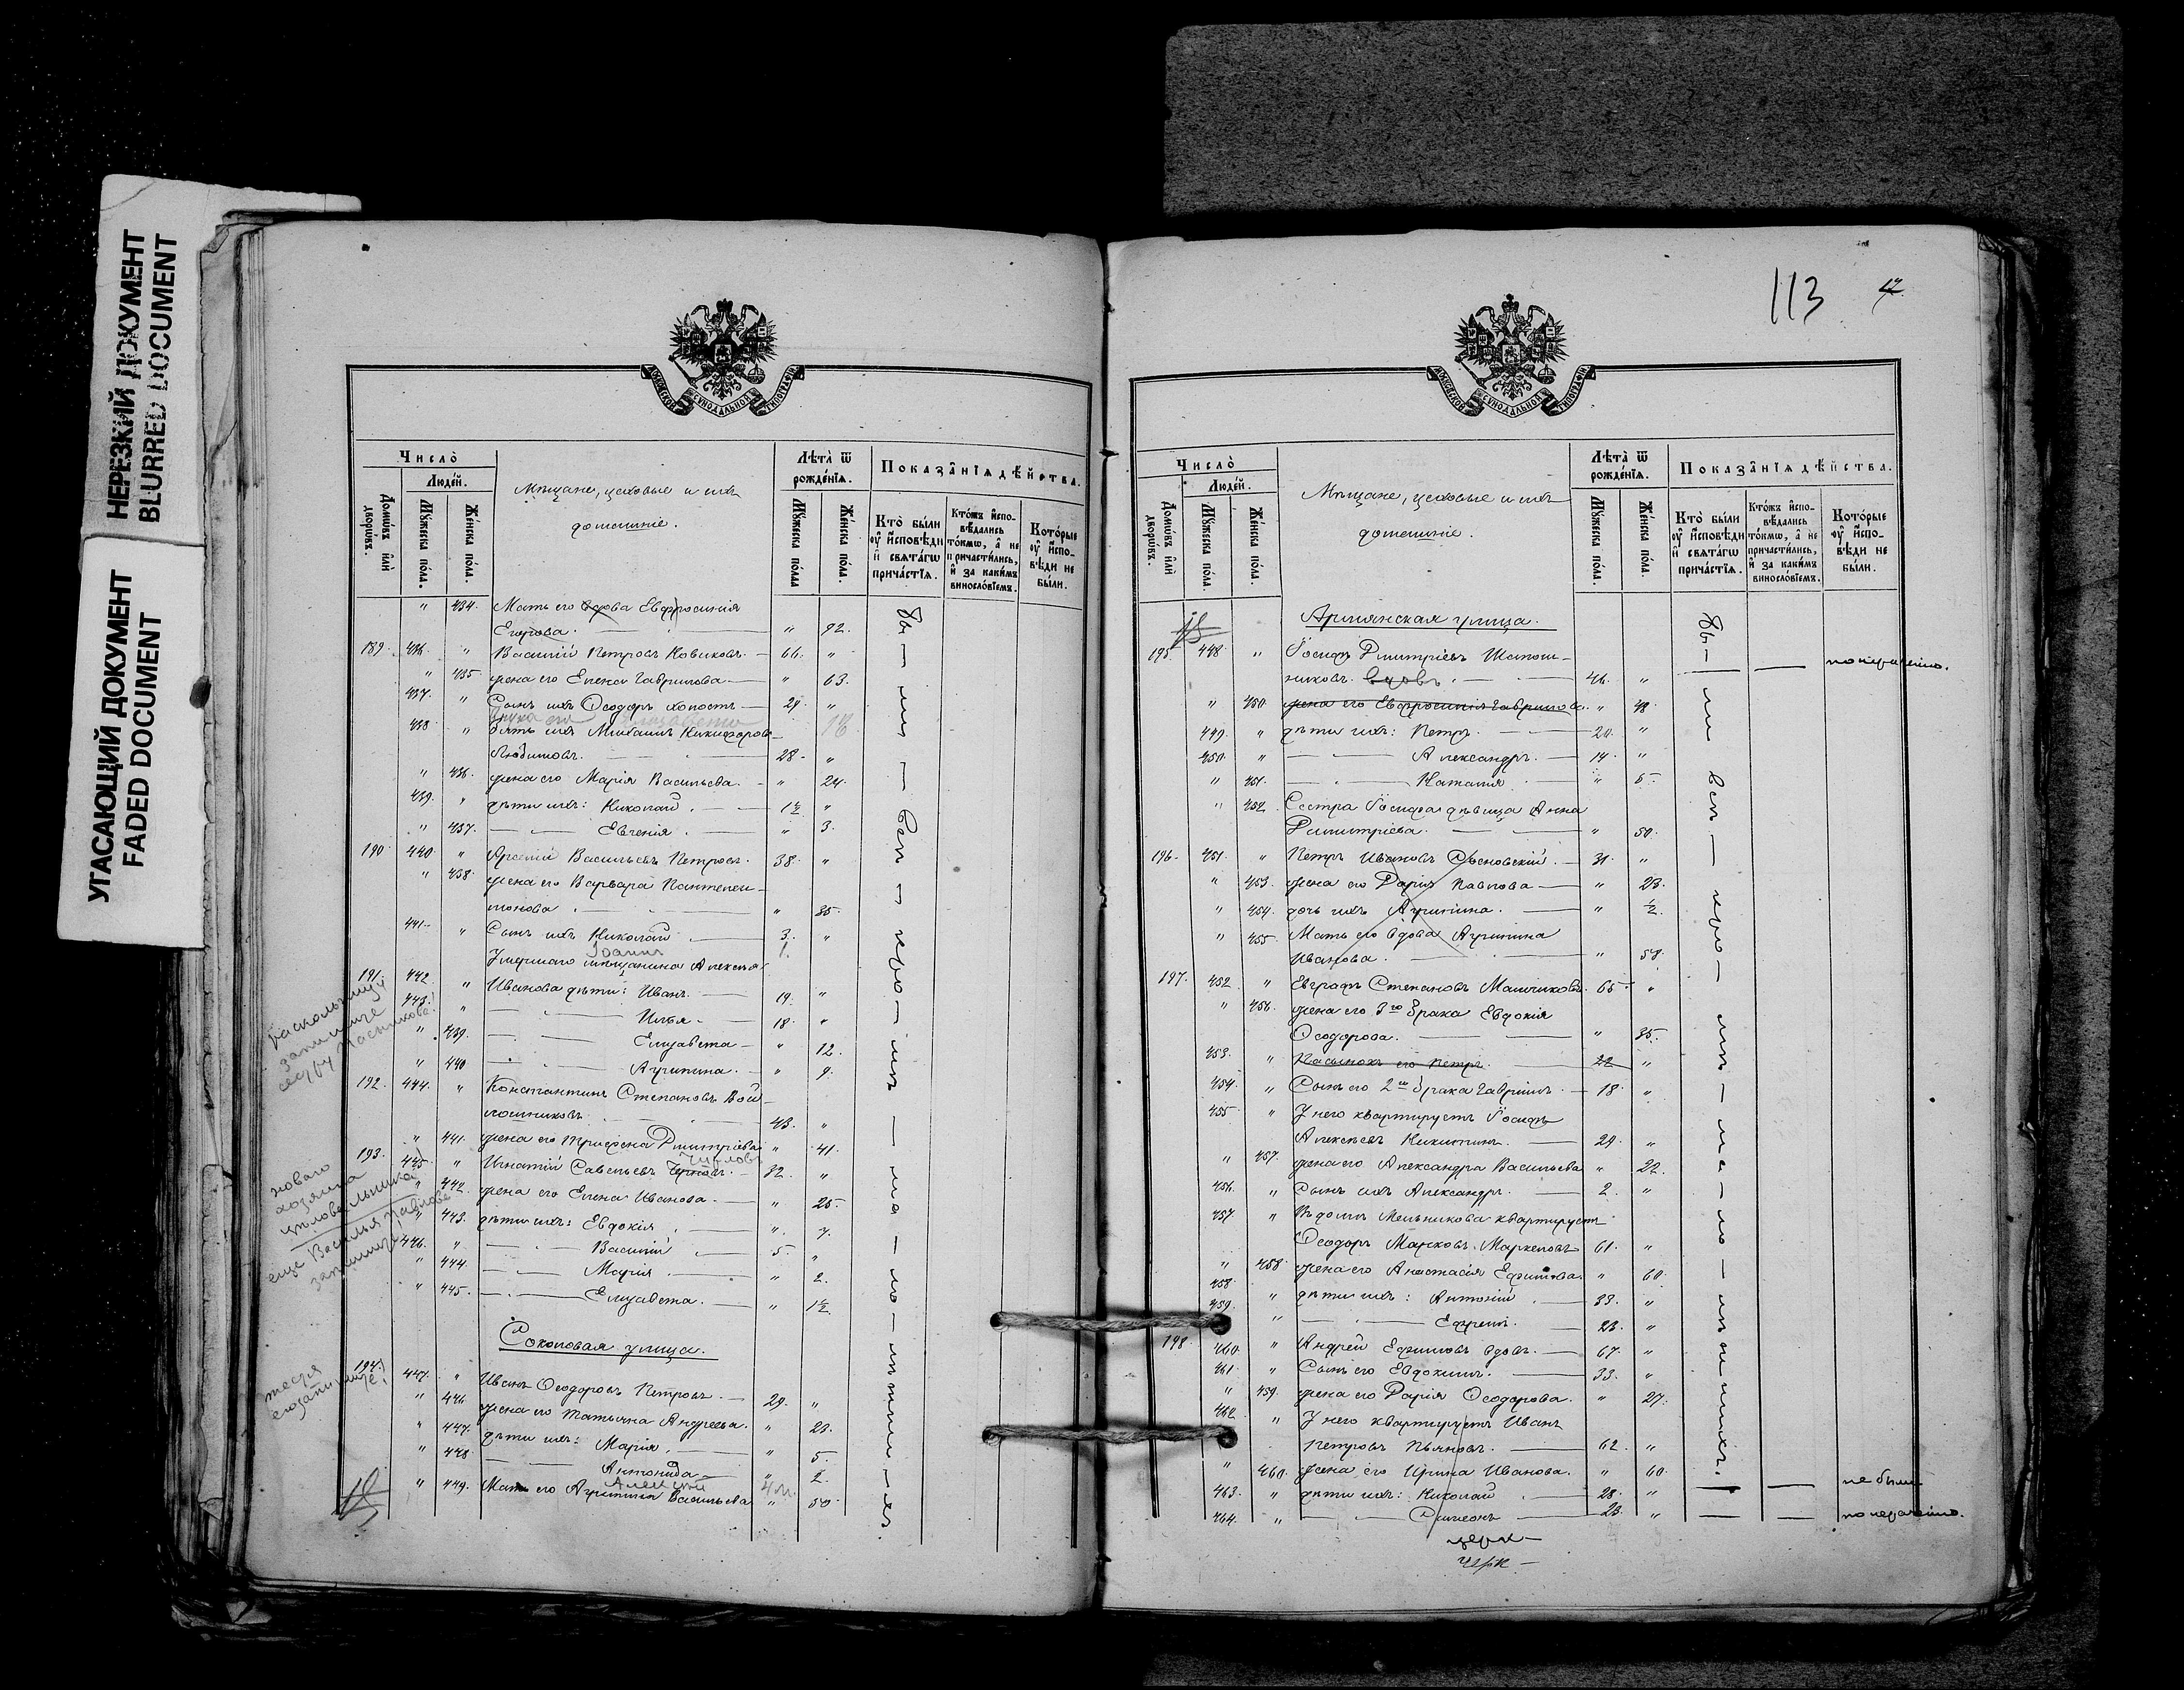 НЕРЕЗКИЙ ДОКУМЕНТ
BLURRED DOCUMENT
УГАСАЮЩИЙ ДОКУМЕНТ
FADED DOCUMENT
МОСКОВСКОЙ СѴНОДАЛЬНОЙ ТИПОГРАФІИ
Число̀
Люде́й.
Домѡ́въ и҆лѝ дворѡ́въ.
Мꙋ́жеска по́ла.
Же́нска по́ла.
Мѣщане, цеховые и ихъ
домашніе.
Лѣта̀ ѿ рожде́нїѧ.
Мꙋ́жеска по́ла
Же́нска по́ла.
Показа̑нїѧ дѣ́йства.
Кто̀ бы́ли ᲂу҆ и҆́сповѣди и҆ свѧта́гѡ прича́стїѧ.
Кто́жъ и҆сповѣ́дались то́кмѡ, а҆ не причасти́лись, и҆ за каки́мъ винослόвїемъ.
Кото́рые ᲂу҆ и҆́сповѣди не бы́ли.
" 434. Мать его вдова Евфросинія
Егорова. " 72.
189. 436. " Василій Петровъ Новиковъ. 66. "
" 435 жена его Елена Гаврилова " 63.
437. " Сынъ ихъ Ѳеодоръ холостъ 29. "
Елизавета
438 " Зять ихъ Михаилъ Никифоровъ
Любимовъ. 28. "
" 436. жена его Марія Васильева. " 24.
439. " дѣти ихъ: Николай. 1½ "
" 437. Евгенія. " 3.
190. 440. " Арсеній Васильевъ Петровъ. 38. "
" 438. жена его Варвара Пантелеи-
монова. " 35.
441. " Сынъ ихъ Николай 3. "
Іоаннъ 1.
Умершаго мѣщанина Алексѣя
191. 442. " Иванова дѣти: Иванъ. 19. "
443. " Илья. 18. "
" 439. Елизавета " 12.
" 440 Агрипина. " 9.
192. 444. " Константинъ Степановъ Вой-
лошниковъ. 43. "
" 441. жена его Дмитріева " 41.
193. 445. " Игнатій Савельевъ 32. "
" 442. жена его Елена Иванова. " 25.
" 443. дѣти ихъ: Евдокія. " 7.
446. " Василій 5. "
" 444 Марія. " 2.
" 445. Елизавета. " 1½
Соколовая улица.
194. 447. " Иванъ Ѳеодоровъ Петровъ. 29. "
" 446 жена его Татьяна Андреева. " 28.
" 447. дѣти ихъ: Марія. " 5.
" 448. Антонида. " 2.
Алексѣй
" 449. Мать его Агрипина Васильева " 50.
Бы-ли-всѣ-кро-мѣ-ма-ло-лѣтнихъ.
новаго
хозяина
еще Василья Павлова
запишите!
113
МОСКОВСКОЙ СѴНОДАЛЬНОЙ ТИПОГРАФІИ
Число̀
Люде́й.
Домѡ́въ и҆лѝ дворѡ́въ.
Мꙋ́жеска по́ла.
Же́нска по́ла.
Мѣщане, цеховые и ихъ
домашніе.
Лѣта̀ ѿ рожде́нїѧ.
Мꙋ́жеска по́ла.
Же́нска по́ла.
Показа̑нїѧ дѣ́йства.
Кто̀ бы́ли ᲂу҆ и҆́сповѣди и҆ свѧта́гѡ прича́стїѧ.
Кто́жъ и҆сповѣ́дались то́кмѡ, а҆ не причасти́лись, и҆ за каки́мъ винослόвїемъ.
Кото́рые ᲂу҆ и҆́сповѣди не бы́ли.
Армянская улица.
195. 448. " Іосифъ Дмитріевъ Шапош-
никовъ. вдовъ. 46. " по нераченію.
" 450 жена его Евфросинія Гаврилова. " 48.
449. " дѣти ихъ: Петръ. 20. "
450. " Александръ. 14. "
" 451. Наталія " 6.
" 452. Сестра Іосифа дѣвица Анна
Димитріева. " 50.
196. 451. " Петръ Ивановъ Сосновскій. 31. "
" 453. жена его Дарія Павлова " 23.
" 454. дочь ихъ Агрипина. " ½.
" 455 Мать его вдова Агрипина
Иванова. " 58.
197. 452. " Евграфъ Степановъ Мельниковъ. 65. "
" 456. жена его 3го брака Евдокія
Ѳеодорова. " 35.
453. " Пасынокъ его Петръ. 22 "
454. " Сынъ его 2го брака Гавріилъ. 18. "
455 " У него квартируетъ Іосифъ
Алексѣевъ Никитинъ. 29. "
" 457. жена его Александра Васильева " 22.
456. " Сынъ ихъ Александръ. 2. "
457. " Въ домѣ Мельникова квартируетъ
Ѳеодоръ Марковъ Маркеловъ 61. "
" 458. жена его Анастасія Ефимова. " 60.
458. " дѣти ихъ: Антоній 33. "
459. " Ефремъ. 23. "
198. 460. " Андрей Ефимовъ вдовъ. 67. "
461. " Сынъ его Евдокимъ. 33. "
" 459. жена его Дарія Ѳеодорова. " 27.
462. " У него квартируетъ Иванъ
Петровъ Пьяновъ. 62. "
" 460. жена его Ирина Иванова. " 60.
463. " дѣти ихъ: Николай 28. " не были
464. " Симеонъ 23. " по нераченію.
Бы-ли всѣ-кро-мѣ-ма-ло-лѣтнихъ.